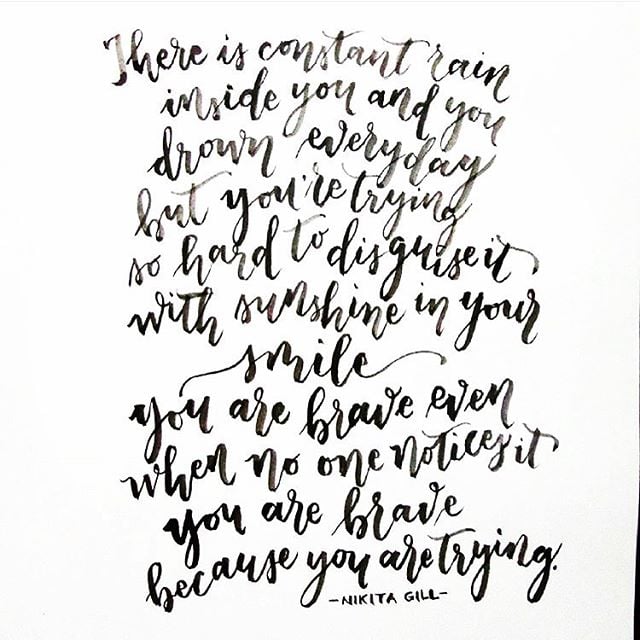 There is constant rain
inside you and you
drown everyday
but you're trying
so hard to disguise it
with sunshine in your
smile
you are brave even
when no one notices it
you are brave
because you are trying.
-NIKITA GILL-